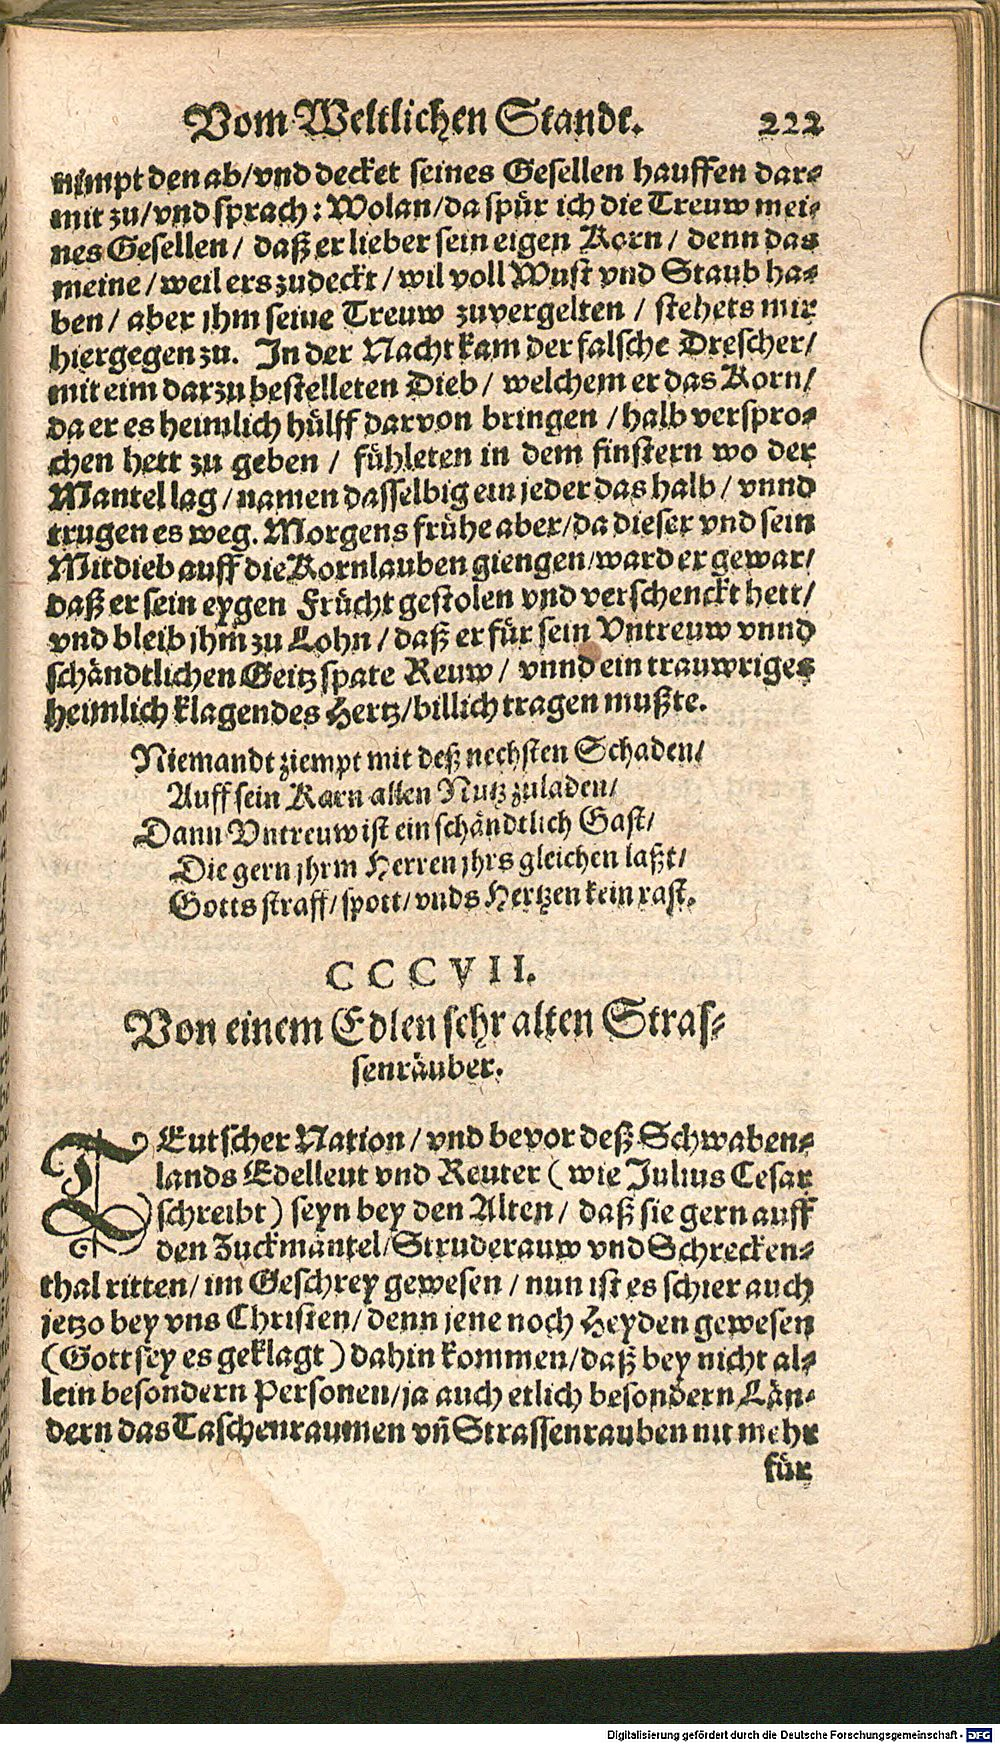 Vom Weltlichen Stande. 222
nimpt den ab/vnd decket seines Gesellen hauffen dar-
mit zu/vnd sprach: Wolan/da spür ich die Treuw mei-
nes Gesellen/ daß er lieber sein eigen Korn/ denn das
meine/weil ers zudeckt/wil voll Wust vnd Staub ha-
ben/ aber jhm seine Treuw zuvergelten / stehets mir
hiergegen zu. In der Nacht kam der falsche Drescher/
mit eim darzu bestelleten Dieb/ welchem er das Korn/
da er es heimlich hülff darvon bringen /halb verspro-
chen hett zu geben / fühleten in dem finstern wo der
Mantel lag/namen dasselbig ein jeder das halb/ vnnd
trugen es weg. Morgens frühe aber/da dieser vnd sein
Mitdieb auff die Kornlauben giengen/ward er gewar/
daß er sein eygen Frücht gestolen vnd verschenckt hett/
vnd bleib jhm zu Lohn/daß er für sein Vntreuw vnnd
schändtlichen Geitz spate Reuw/ vnnd ein trauwriges
heimlich klagendes Hertz/billich tragen mußte.
Niemandt ziempt mit deß nechsten Schaden/
Auff sein Karn allen Nutz zuladen/
Dann Vntreuw ist ein schändtlich Gast/
Die gern jhrm Herren jhrs gleichen laßt/
Gotts straff/spott/vnds Hertzen kein rast.
CCCVII.
Von einem Edlen sehr alten Stras-
senräuber.
TEutscher Nation/vnd bevor deß Schwaben-
lands Edelleut vnd Reuter (wie Julius Cesar
schreibt) seyn bey den Alten/ daß sie gern auff
den Zuckmäntel/Struderauw vnd Schrecken-
thal ritten/im Geschrey gewesen/nun ist es schier auch
jetzo bey vns Christen/denn jene noch Heyden gewesen
(Gott sey es geklagt) dahin kommen/daß bey nicht al-
lein besondern Personen/ja auch etlich besondern Län-
dern das Taschenraumen vñ Strassenrauben nit mehr
für
Digitalisierung gefördert durch die Deutsche Forschungsgemeinschaft - DFG